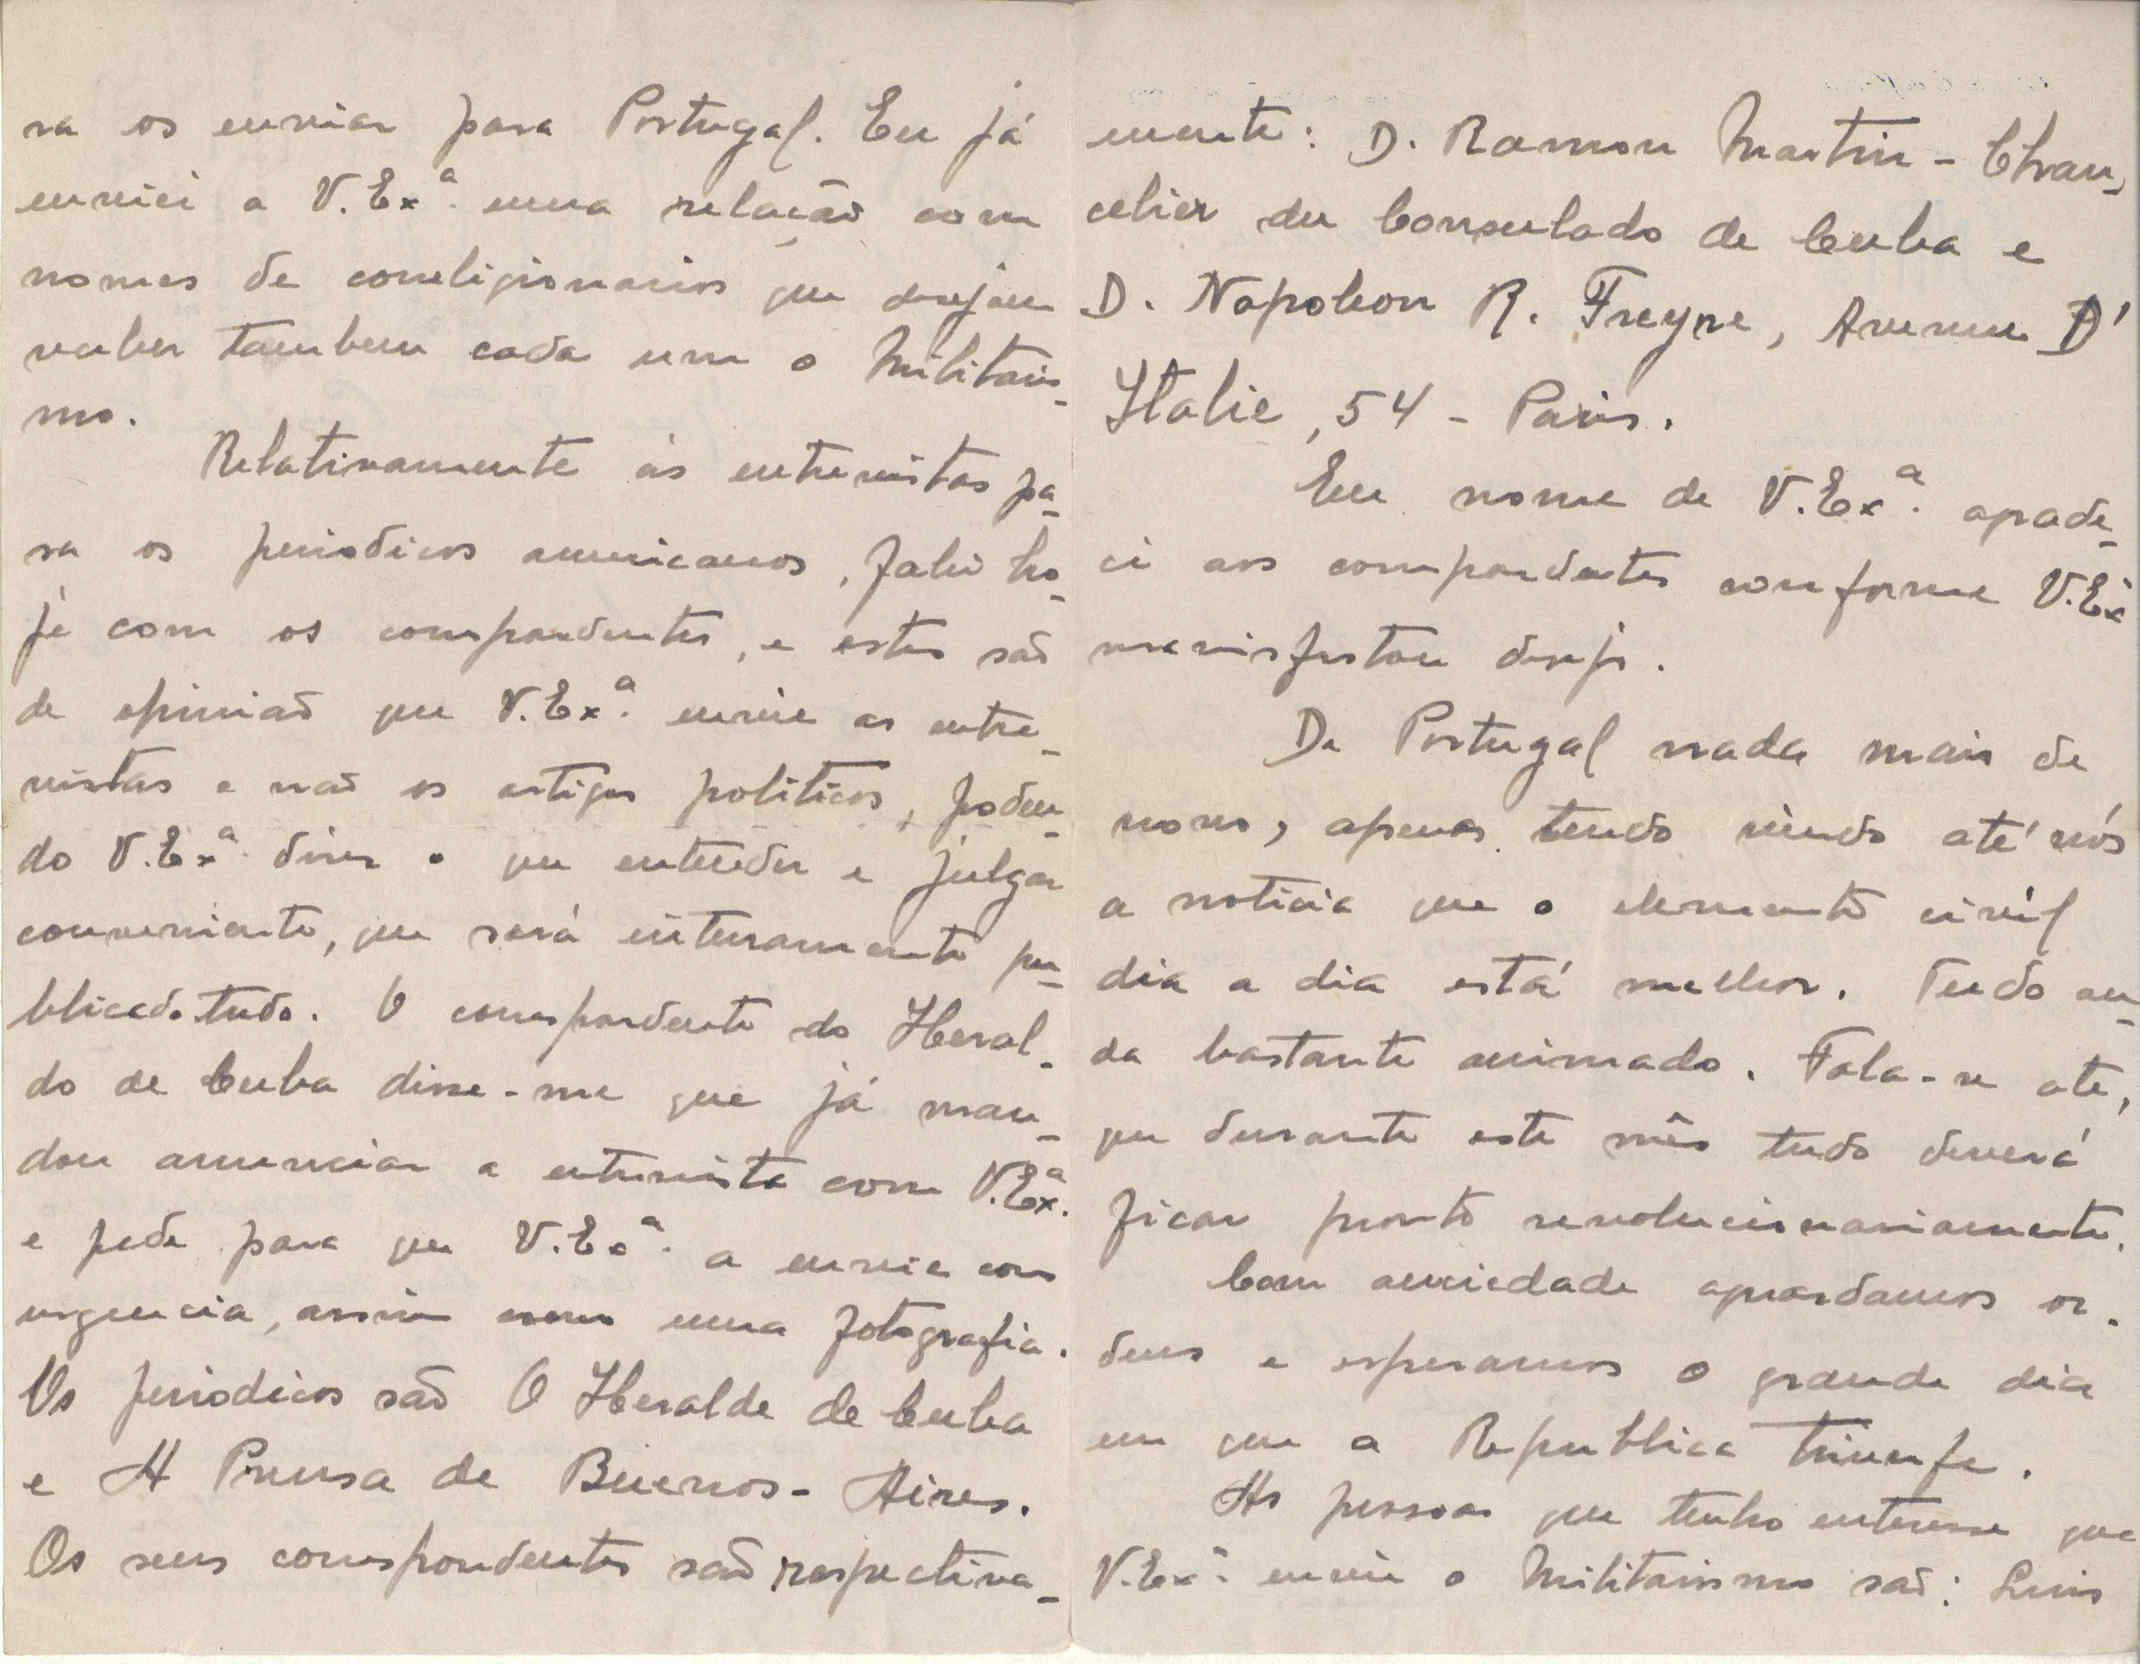 ra os enviar para Portugal. Eu já
enviei a V. Exª. uma relação com
nomes de correligionarios que desejam
receber tambem cada um o Militaris-
mo.
Relativamente ás entrevistas pa-
ra os periodicos americanos, falei ho-
je com os correspondentes, e estes são
de opinião que V. Exª. envie as entre-
vistas e não os artigos politicos, poden-
do V. Exª. dizer o que entender e julgar
conveniente, que será inteiramente pu-
blicado tudo. O correspondente do Heral-
do de Cuba disse-me que já man-
dou anunciar a entrevista com V. Exª.
e pede para que V. Exª. a envie com
urgencia, assim como uma fotografia.
Os periodicos são O Heralde de Cuba
e A Prensa de Buenos-Aires.
Os seus correspondentes são respectiva-
mente: D. Ramon Martin - Chan-
celier du Consulado de Cuba e
D. Napoleon R. Freyre, Avenue D'
Italie, 54 - Paris.
Em nome de V. Exª. agrade-
ci aos correspondentes conforme V. Exª
manisfestou desejo.
De Portugal nada mais de
novo, apenas tendo vindo até nós
a noticia que o elemento civil
dia a dia está melhor. Tudo an-
da bastante animado. Fala-se até,
que durante este mês tudo deverá
ficar pronto revolucionariamente.
Com anciedade aguardamos or-
dens e esperamos o grande dia
em que a Republica triunfe.
As pessoas que tenho interesse que
V. Exª. envie o Militarismo são: Luis